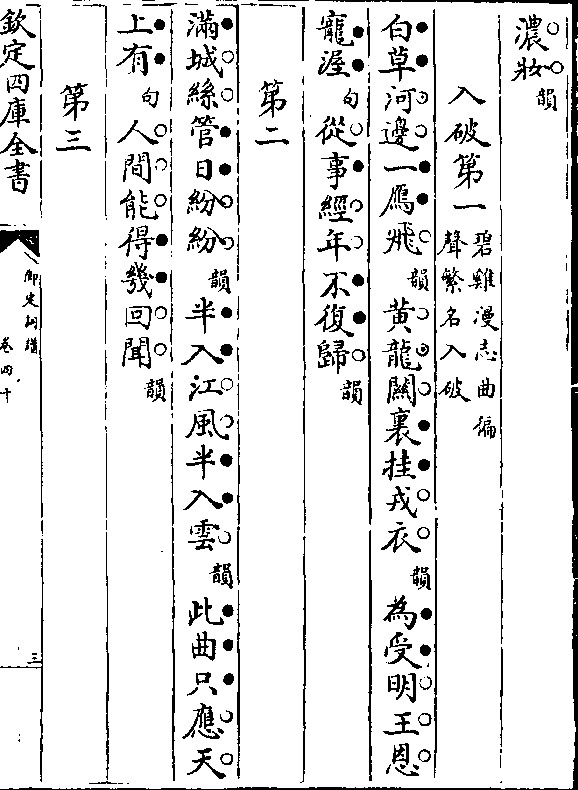 濃妝韻
入破第一碧雞漫志曲徧聲繁名入破
白草河邊一鴈飛韻黃龍闗裏挂戎衣韻為受明王恩
寵渥句從事經年不復歸韻
第二
滿城絲管日紛紛韻半入江風半入雲韻此曲只應天
上有句人間能得幾回聞韻
第三
欽定四庫全書
御定詞譜
卷四十
三